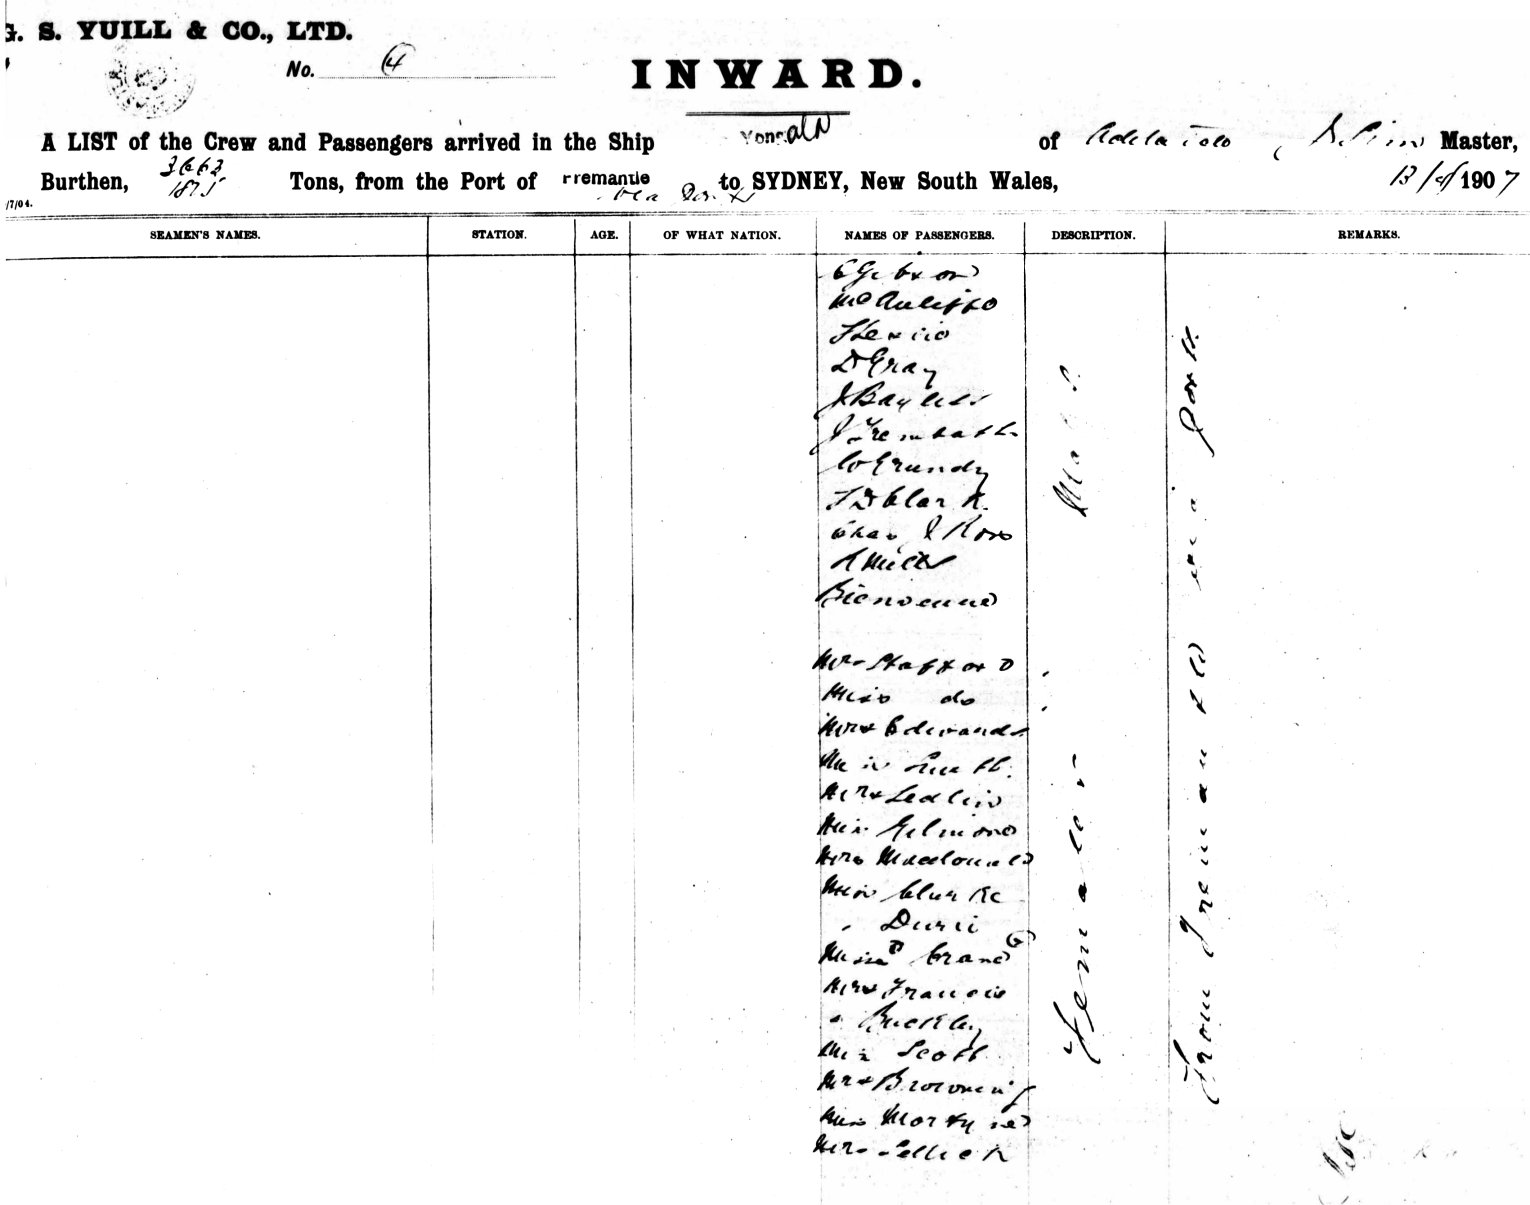 G. S. YUILL & CO., LTD.
No. 4
INWARD.
A LIST of the Crew and Passengers arrived in the Ship Yongala of Adelaide Master,
Burthen, 3663 1875 Tons, from the Port of Fremantle via Ports to SYDNEY, New South Wales, 13/4/1907
/7/04.
SEAMEN'S NAMES. STATION. AGE. OF WHAT NATION. NAMES OF PASSENGERS. DESCRIPTION. REMARKS.
E Gibson
McAuliffe
D Gray
J Bayliss
J Trembath
W Grundy
F D Clark
Chas J Ross
R Mills
Bienvenue
Mrs Stafford
Miss do
Mrs Edwards
Miss Smith
Mrs
Miss Gilmore
Mrs Macdonald
Miss Clarke
Misses Crane (2)
Mrs Francis
" Buckley
Miss Scott
Mrs Browning
Miss
Mrs Sellick
Males
Females
From Fremantle via Ports